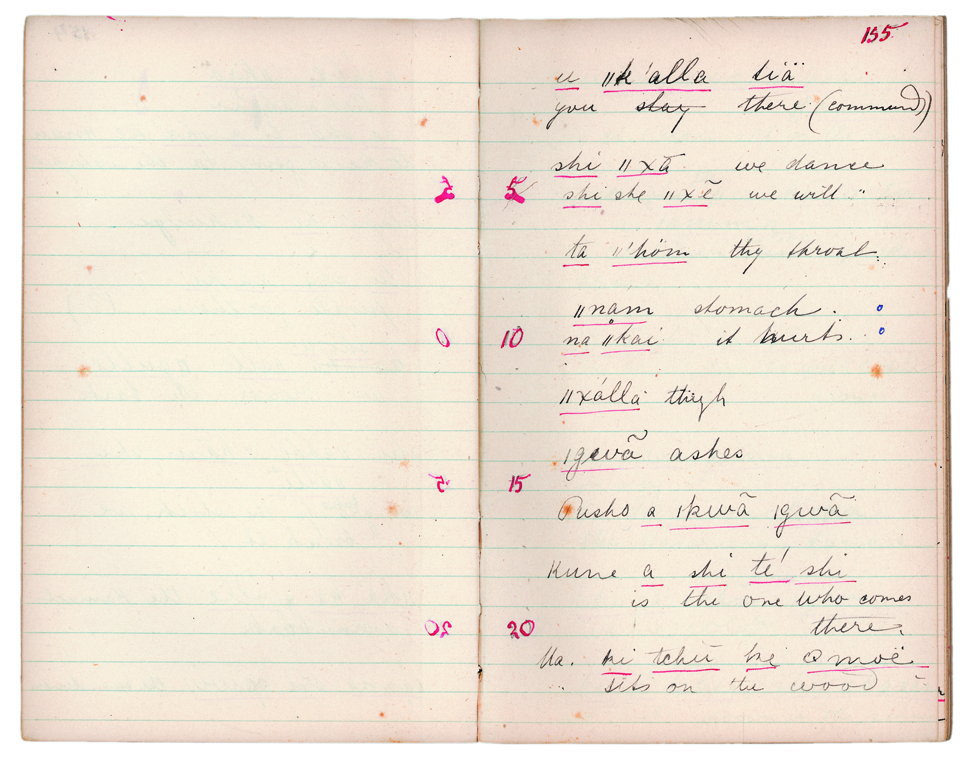 155.
u ǁk'alla tiä
you stay there (command)
shi ǁxā we dance
5 shi she ǁxē we will "
ta ǁ'hóm thy throat
ǁnám stomach.
10 na ǁkai it hurts.
ǁxálla thigh
ǀgwã ashes
15 Rusho a ǀkwã ǀgwã
Kune a shi té' shi
is the one who comes
20 there.
Ma. ki tchu ke ʘmoë
sits on the wood